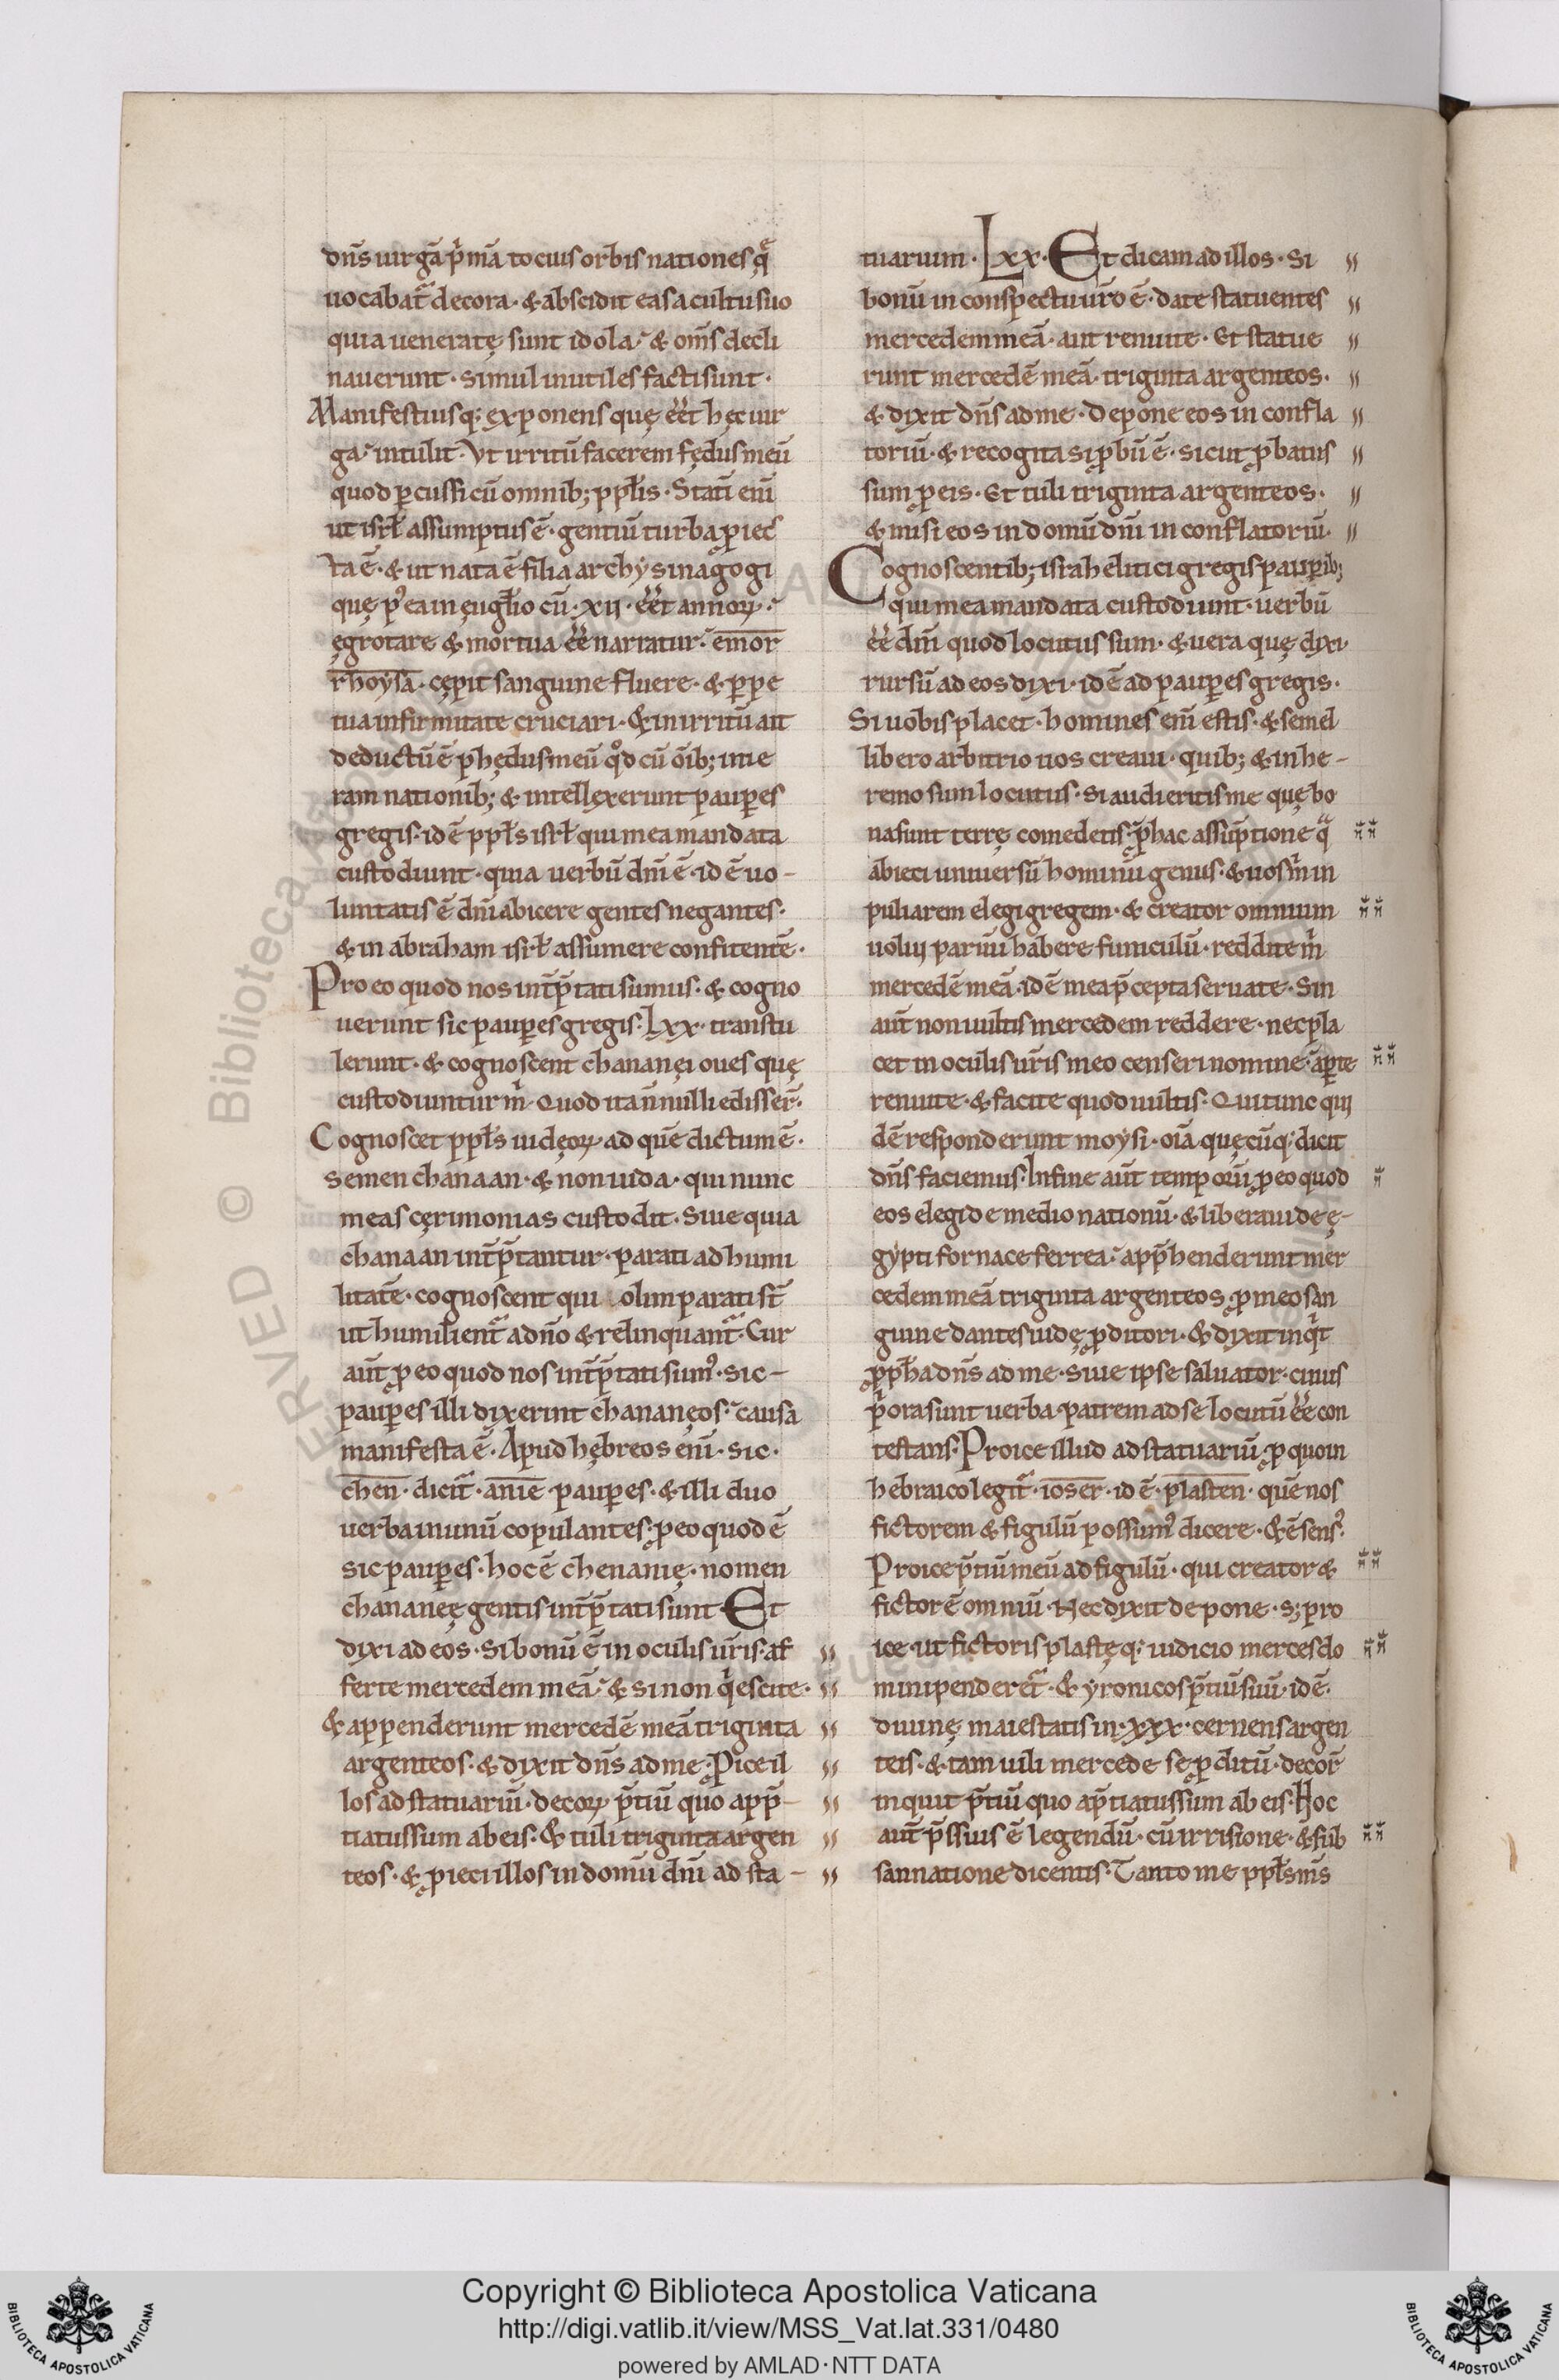 dn̄s uirgā p̄mā tocius orbis nationes q̄
uocabat̄ decora · & abscidit eas a cultu suo
quia ueneratę sunt idola · & om̄s decli
nauerunt · simul inutiles facti sunt ·
Manifestiusq; exponens quę eēt hęc uir
ga · intulit · Vt irritū facerem fędus meū
quod ꝑcussi cū omnib; ppl̄is · Stati eni͞
ut isrl̄ assumptus ē · gentiū turba ꝓiec
ta ē · & ut nata ē filia archysinagogi
quę pꝰea in ęugl̄io cū · xij · eēt annoꝝ ·
ęgrotare & mortua eē narratur · emor
rhoysa · cępit sanguine fluere · & ꝑpe
tua infirmitate cruciari · & in irritū aīt
deductū ē phędus meū qd̊ cū oīb; inie
ram nationib; & intellexerunt pauꝑes
gregis · id ē ppl̄s isrl̄ qui mea mandata
custodiunt · quia uerbū dn̄i ē · id ē uo-
luntatis ē dn̄i abicere gentes negantes ·
& in abraham isrl̄ assumere confitentē ·
Pro eo quod nos int̄p̄tati sumus · & cogno
uerunt sic pauꝑes gregis · Lxx · transtu
lerunt · & cognoscent chananęi oues quę
custodiuntur m̄ · Quod ita n̄nulli edisser̄ ·
Cognoscet ppl̄s iudęoꝝ · ad quē dictum ē ·
semen chanaan · & non iuda · qui nunc
meas cęrimonias custodit · Siue quia
chanaan int̄p̄tantur · parati ad humi
litatē · cognoscent qui olim parati st̄
ut humilient̄ a dn̄o & relinquant̄ · Cur
aut̄ ꝓ eo quod nos int̄p̄tati sumꝰ · sic-
pauꝑes illi dixerint chananęos · causa
manifesta ē · Apud hębreos eni͞ · sic ·
chen · dicit̄ · anie · pauꝑes · & illi duo
uerba in unū copulantes · ꝓ eo quod ē
sic pauꝑes · hoc ē chenanię · nomen
chananeę gentis int̄p̄tati sunt · Et
dixi ad eos · Si bonū ē in oculis ur̄is · af
ferte mercedem meā · & si non q̄escite ·
& appenderunt mercedē meā triginta
argenteos · & dixit dn̄s ad me · Ꝓice il
los ad statuariū · decoꝝ p̄tiū quo app̄-
tiatus sum ab eis · & tuli triginta argen
teos · & ꝓieci illos in domū dn̄i ad sta-
tuarium · Lxx · Et dicam ad illos · Si
bonū in conspectu ur̄o ē · date statuentes
mercedem meā · aut renuite · Et statue
runt mercedē meā · triginta argenteos ·
& dixit dn̄s ad me · Depone eos in confla
toriū · & recogita si ꝓbū ē · sicut ꝓbatus
sum ꝓ eis · Et tuli triginta argenteos ·
& misi eos in domū dn̄i in conflatoriū ·
Cognoscentib; israheliticigregis pauꝑib;
qui mea mandata custodiunt · uerbū
eē dn̄i quod locutus sum · & uera quę dixi ·
rursū ad eos dixi · id ē ad pauꝑes gregis ·
Si uobis placet · homines eni͞ estis · & semel
libero arbitrio uos creaui · quib; & in he-
remo sum locutus · Si audieritis me quę bo
na sunt terrę comedetis · ꝓ hac assūptione q̄
abieci uniuersū hominū genus · & uos m̄ in
puliarem elegi gregem · & creator omnium
uolui paruū habere funiculū · reddite m̄
mercedē meā · id ē mea p̄cepta seruate · Sin
aut̄ non uultis mercedem reddere · nec pla
cet in oculis ur̄is meo censeri nomine · aꝑte
renuite · & facite quod uultis · Qui tunc qui
dē responderunt moysi · oīa quęcūq; dicit
dn̄s faciemus · In fine aut̄ temporū ꝓ eo quod
eos elegi de medio nationū · & liberaui de ę-
gypti fornace ferrea · app̄henderunt mer
cedem meā triginta argenteos ꝓ meo san
guine dantes iudę ꝓditori · & dixit inq̄t
ꝓph̄a dn̄s ad me · siue ipse saluator · cuius
p̄ ora sunt uerba · patrem ad se locutū eē con
testans · Proice illud ad statuariū · ꝓ quo in
hebraico legit̄ · ioser · id ē · plasten · quē nos
fictorem & figulū possumꝰ dicere · & ē sensꝰ ·
Proice p̄tiū meū ad figulū · qui creator &
fictor ē omniū · Nec dixit depone · s; pro
ice · ut fictoris plastęq; iudicio merces do
mini penderet̄ · & yronicos p̄tiū suū · id ē ·
diuinę maiestatis in · xxx · cernens argen
teis · & tam uili mercede se ꝓditū · decor̄
inquit p̄tiū quo ap̄tiatus sum ab eis · Hoc
aut̄ p̄ssius ē legendū · cū irrisione · & sub
sannatione dicentis · Tanto me ppl̄s ms̄
RVED © Biblioteca Apostolica
Copyright © Biblioteca Apostolica Vaticana
http://digi.vatlib.it/view/MSS_Vat.lat.331/0480
powered by AMLAD · NTT DATA
BIBLIOTECA APOSTOLICA VATICANA
BIBLIOTECA APOSTOLICA VATICANA